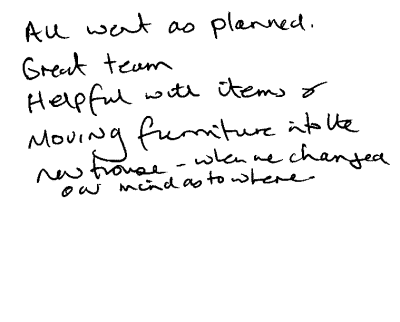 All went as planned.
Great team
Helpful with items &
Moving furniture into the
new house - when we changed
our mind as to where.